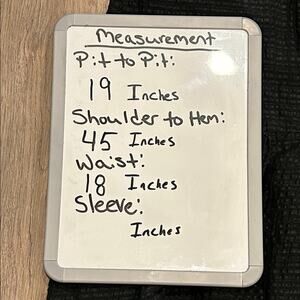 Measurement
Pit to Pit:
19 Inches
Shoulder to Hem:
45 Inches
Waist:
18 Inches
Sleeve:
Inches